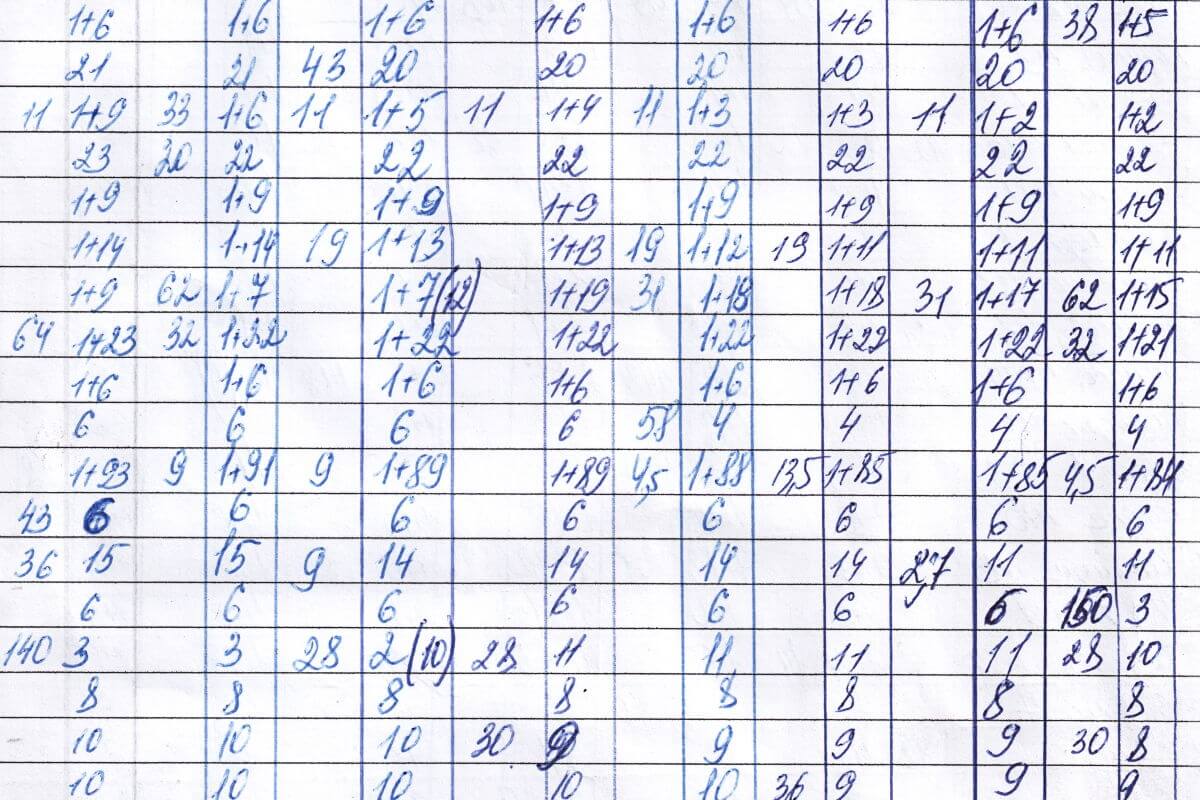 1+6 1+6 1+6 1+6 1+6 1+6 1+6 38 1+5
21 21 43 20 20 20 20 20 20
11 1+9 33 1+6 11 1+5 11 1+4 11 1+3 1+3 11 1+2 1+2
23 30 22 22 22 22 22 22 22
1+9 1+9 1+9 1+9 1+9 1+9 1+9 1+9
1+14 1+14 19 1+13 1+13 19 1+12 19 1+11 1+11 1+11
1+9 62 1+7 1+7(12) 1+19 31 1+18 1+18 31 1+17 62 1+15
64 1+23 32 1+22 1+22 1+22 1+22 1+22 1+22 32 1+21
1+6 1+6 1+6 1+6 1+6 1+6 1+6 1+6
6 6 6 6 58 4 4 4 4
1+93 9 1+91 9 1+89 1+89 4,5 1+88 13,5 1+85 1+85 4,5 1+84
43 6 6 6 6 6 6 6 6
36 15 15 9 14 14 14 14 27 11 11
6 6 6 6 6 6 6 150 3
140 3 3 28 2(10) 28 11 11 11 11 28 10
8 8 8 8 8 8 8 8
10 10 10 30 9 9 9 9 30 8
10 10 10 10 10 36 9 9 9